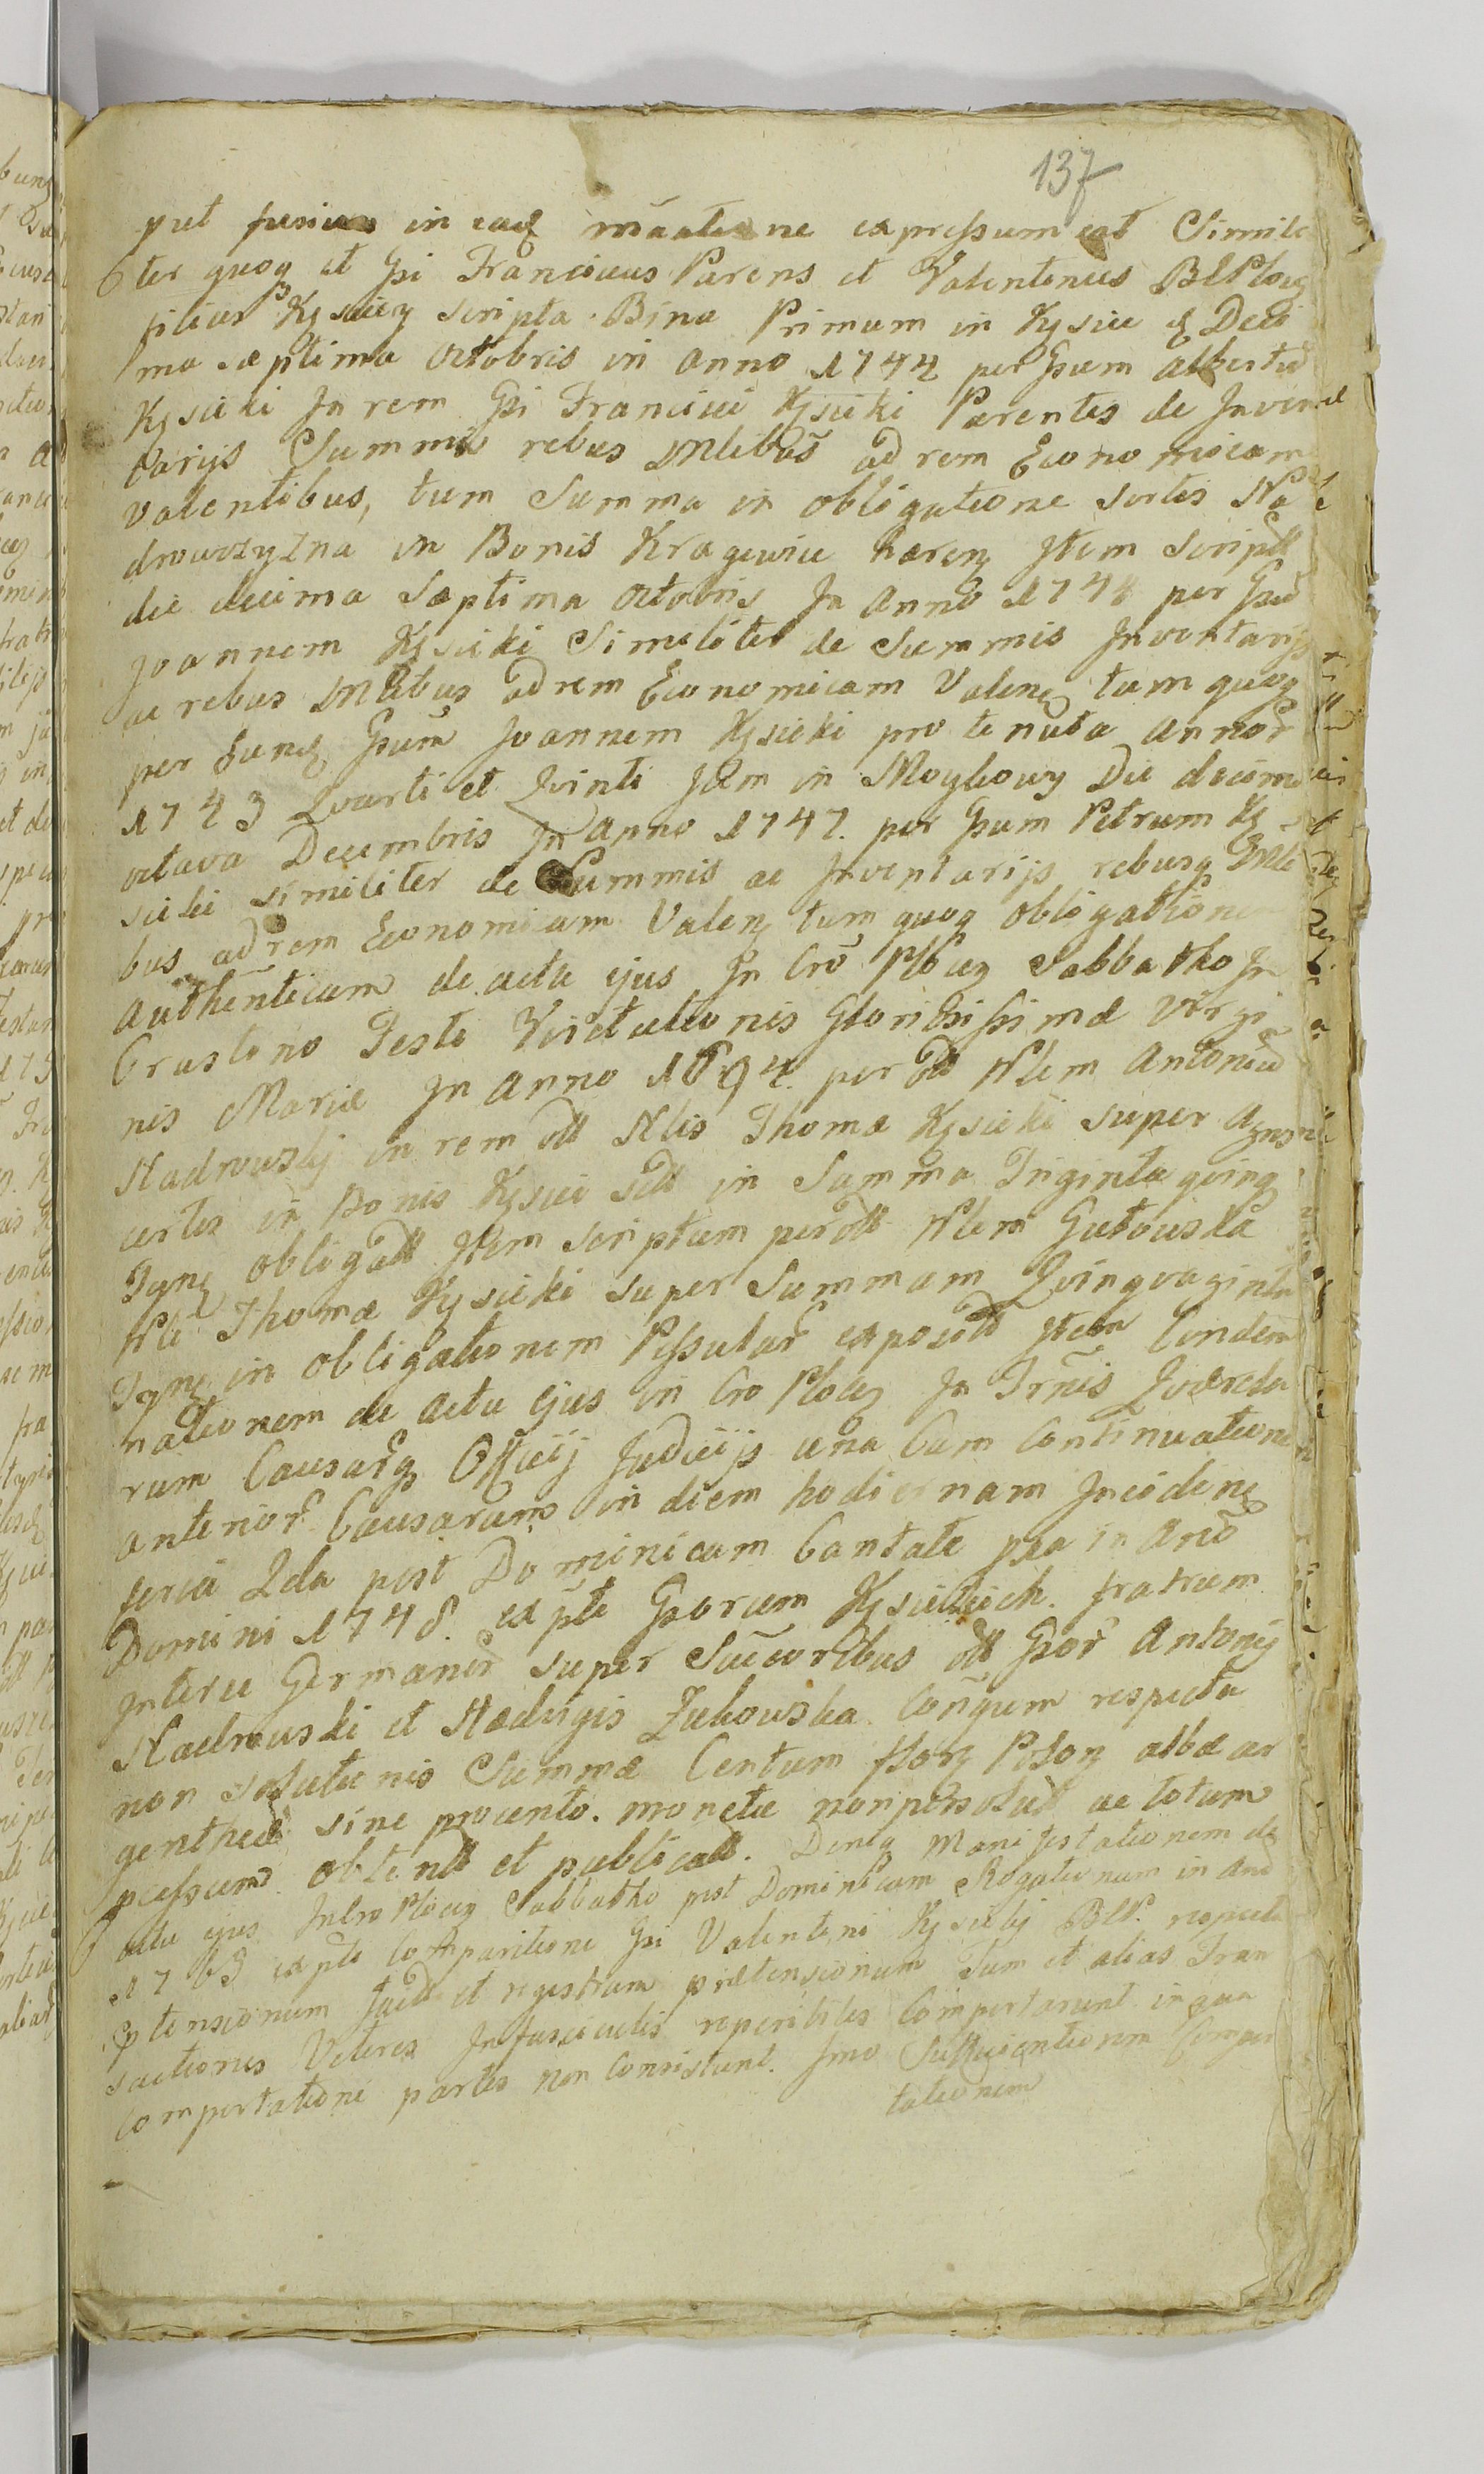 137
put fusius in eaq mãatione expressum est Simili
ter quoq et Gsi Franciscus Parens et Valentinus BLPlocz
filius Kęsiccy scripta Bina Primum in Kęsice d Deci
ma septima Octobris in Anno 1744 per Gsum Albertũ
Kęsicki In rem Gsi Francisci Kęsicki Parentis de Inven
tarijs Summis rebus Mlibus ad rem Economicam
valentibus, tum Summa in obligatione sortis Na
drowszyzna in Bonis Kragewice haereñ Item Script
die decima Septima Octobris In Anno 1748 per Gsũ
Joannem Kęsicki Similiter de Summis Inventarijs
ac rebus Mlibus ad rem Economicam Valenq tum quoq
per Eunq Gsum Joannem Kęsicki pro tenuta Annor
1743 Quarti et Quinti Item in Moykowy Die decima
octava Decembris In Anno 1747. per Gsum Petrum Kę
sicki similiter de Summis ac Inventarijs rebusq Mli
bus ad rem Economicam Valenq tum quoq obligationem
Authenticam de actu ejus In Cro Plocz Sabbatho In
Crastino Festi Visitationis Gloriosissimæ Virgi
nis Mariæ In Anno 1694. per olt Nlem Antoniũ
Nadrowski in rem olt Nlis Thomæ Kęsicki super Agris
certis in Bonis Kęsice sitt in Summa Triginta quinq
Tynq obligatt Item scriptum per olt Nlem Gutowska
Nli Thomæ Kęsicki super Summam Quinquaginta
Tynq in obligationem Possular exposit Item Condem
nationem de Actu ejus in Cro Plocz In Trnis Quærela
rum Causarq Officij Judicijs una Cum Continuatione
anterior Causarum in diem hodiernam Incidenq
feria 2da post Dominicam Cantate pxa in Anõ
Domini 1748. ex pte Gsorum Kęsickich fratrum
Inter se Germanor super Succoribus olt Gsor Antonij
Nadrowski et Hedvigis Żukowska Conjgum respectu
non solutionis Summæ Centum flor Polon albæ ar
gentheæ sine procento monetæ non persolut ac totum
pcessum obtent et publicatt. Deniq Manifestationem de
actu ejus In Cro Plocz Sabbatho post Dominicam Rogationum in Anõ
1763 ex pte Comparitione Gsi Valentini Kęsicki BLP. respectu
ptensionum fact et regestrum prætensionum Tum et alias Tran
sactiones Veteres In fasciculis reperibiles Comportarunt in qua
Comportatione partes non Consistunt. Imo Sufficientiorem Compor
tationem